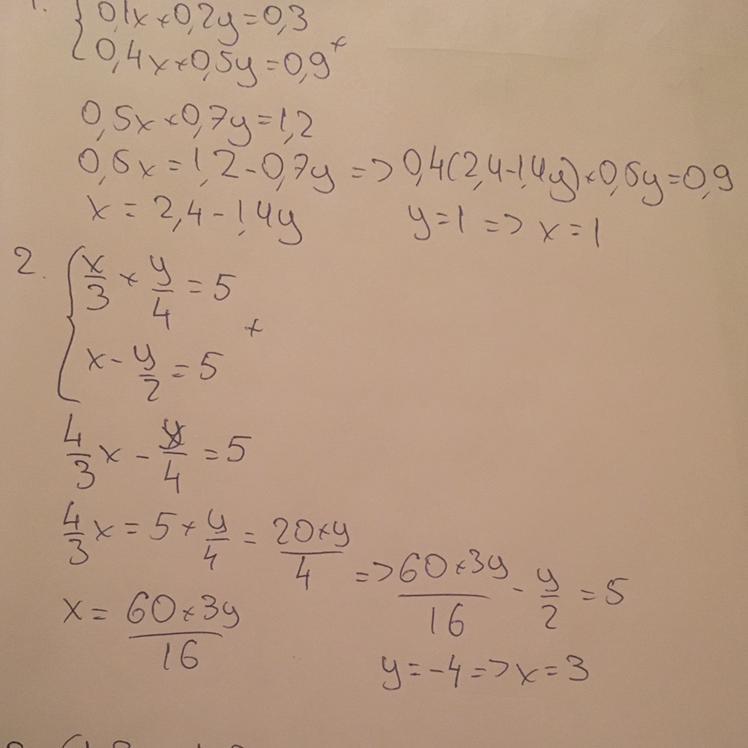 1. { 0,1x+0,2y=0,3
0,4x+0,5y=0,9 +
0,5x+0,7y=1,2
0,5x=1,2-0,7y => 0,4(2,4-1,4y)+0,5y=0,9
x=2,4-1,4y y=1 => x=1
2. { x/3 + y/4 = 5
x - y/2 = 5 +
4/3 x - y/4 = 5
4/3 x = 5 + y/4 = 20+y/4 => 60+3y/16 - y/2 = 5
x = 60+3y/16
y=-4 => x=3